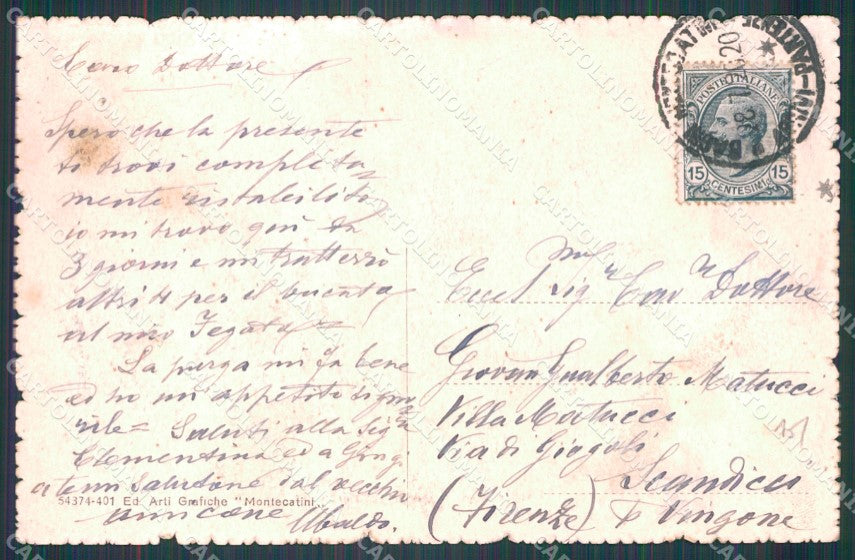 Caro Dottore
Spero che la presente
ti trovi completa=
mente ristabilito
io mi trovo quì da
3 giorni e mi tratterrò
altri 4 per il bucato
al mio Fegato
La purga mi fa bene
ed ho un appetito signo=
rile = Saluti alla Sig
Clementina ed a Gingi
a te un Salutone dal vecchio
amicone Ubaldo.
54374-401 Ed. Arti Grafiche "Montecatini"
POSTE ITALIANE
15 15
CENTESIMI
Sig Cav Dottore
Giovan Gualberto Matucci
Villa Matucci
Via di Giogoli
Scandicci
(Firenze) x Vingone
CARTOLINOMANIA